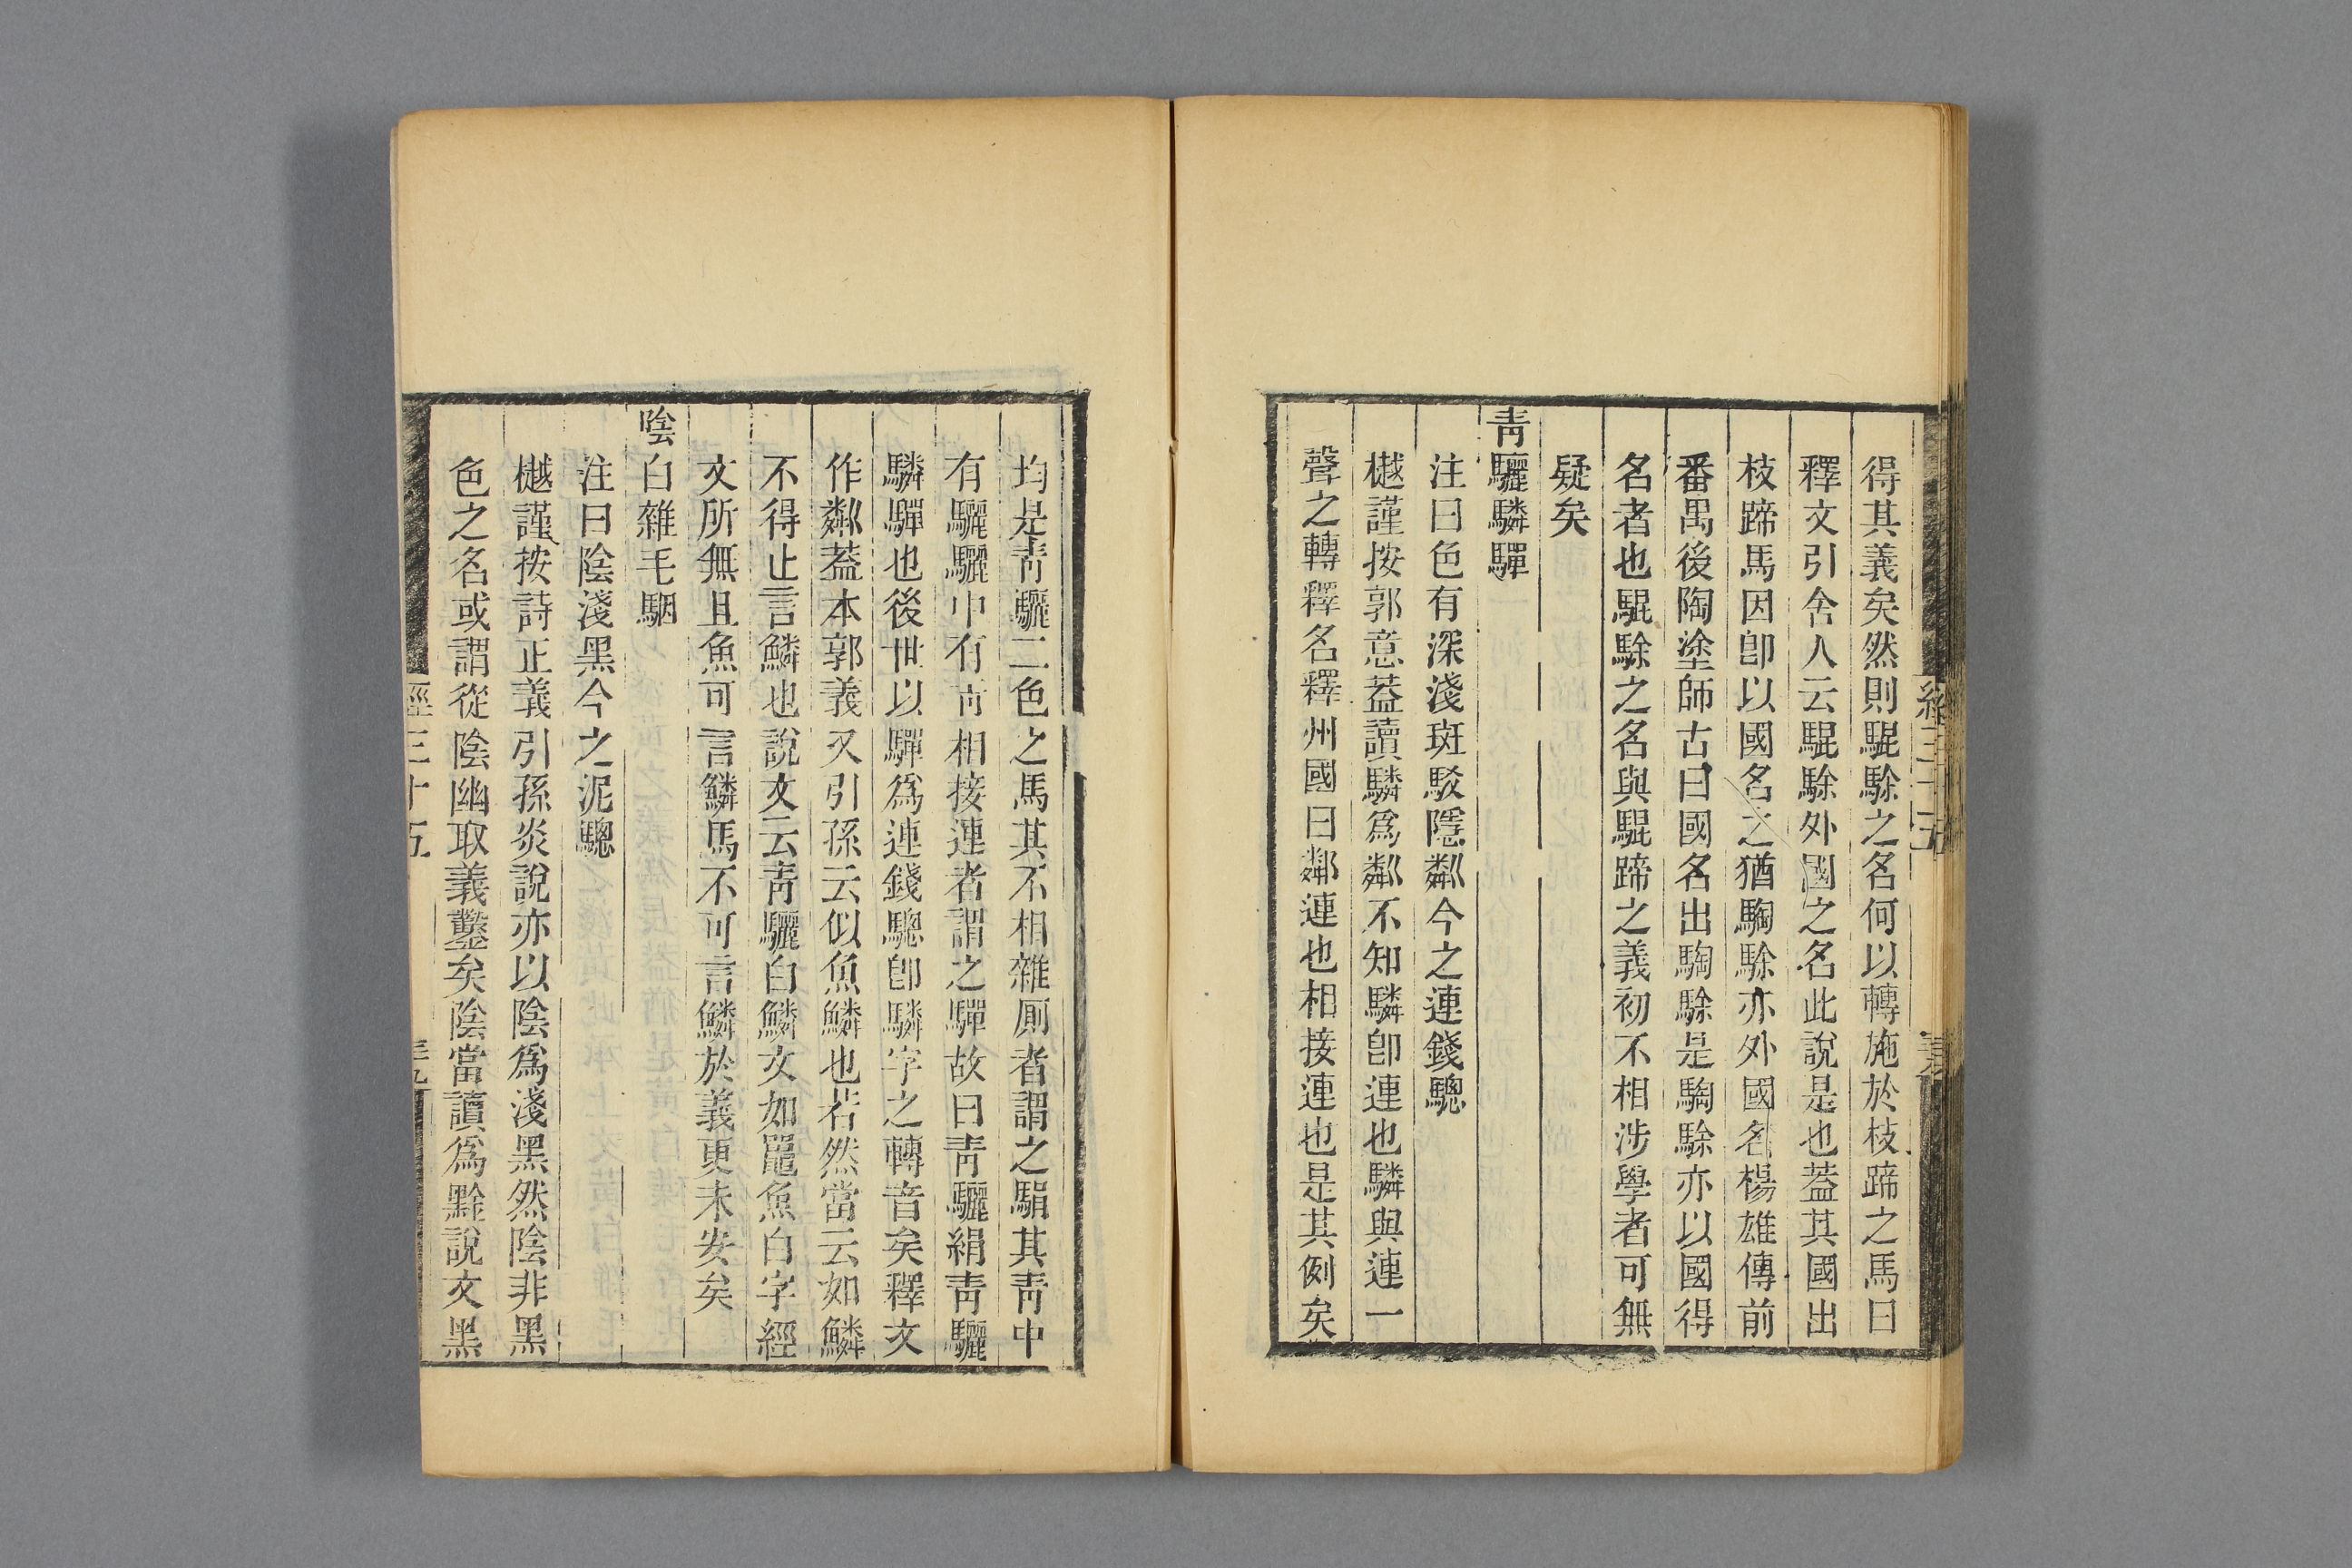 得其義矣然則騉駼之名何以轉施於枝蹄之馬曰
釋文引舍人云騉駼外國之名此說是也葢其國出
枝蹄馬因卽以國名之猶騊駼亦外國名楊雄傳前
番禺後陶塗師古曰國名出騊駼是騊駼亦以國得
名者也騉駼之名與騉蹄之義初不相涉學者可無
疑矣
青驪驎驒
注曰色有深淺斑駁隱粼今之連錢驄
樾謹按郭意葢讀驎爲粼不知驎卽連也驎與連一
聲之轉釋名釋州國曰鄰連也相接連也是其例矣
均是靑驪二色之馬其不相雜厠者謂之駽其靑中
有驪驪中有靑相接連者謂之驒故曰靑驪絹靑驪
驎驒也後世以驒爲連錢驄卽驎字之轉音矣釋文
作粼葢本郭義又引孫云似魚鱗也若然當云如鱗
不得止言鱗也說文云靑驪白鱗文如鼍魚白字經
文所無且魚可言鱗馬不可言鱗於義更未安矣
陰白雜毛駰
注曰陰淺黑今之泥驄
樾謹按詩正義引孫炎說亦以陰爲淺黑然陰非黑
色之名或謂從陰幽取義鑿矣陰當讀爲黔說文黑
經三十五